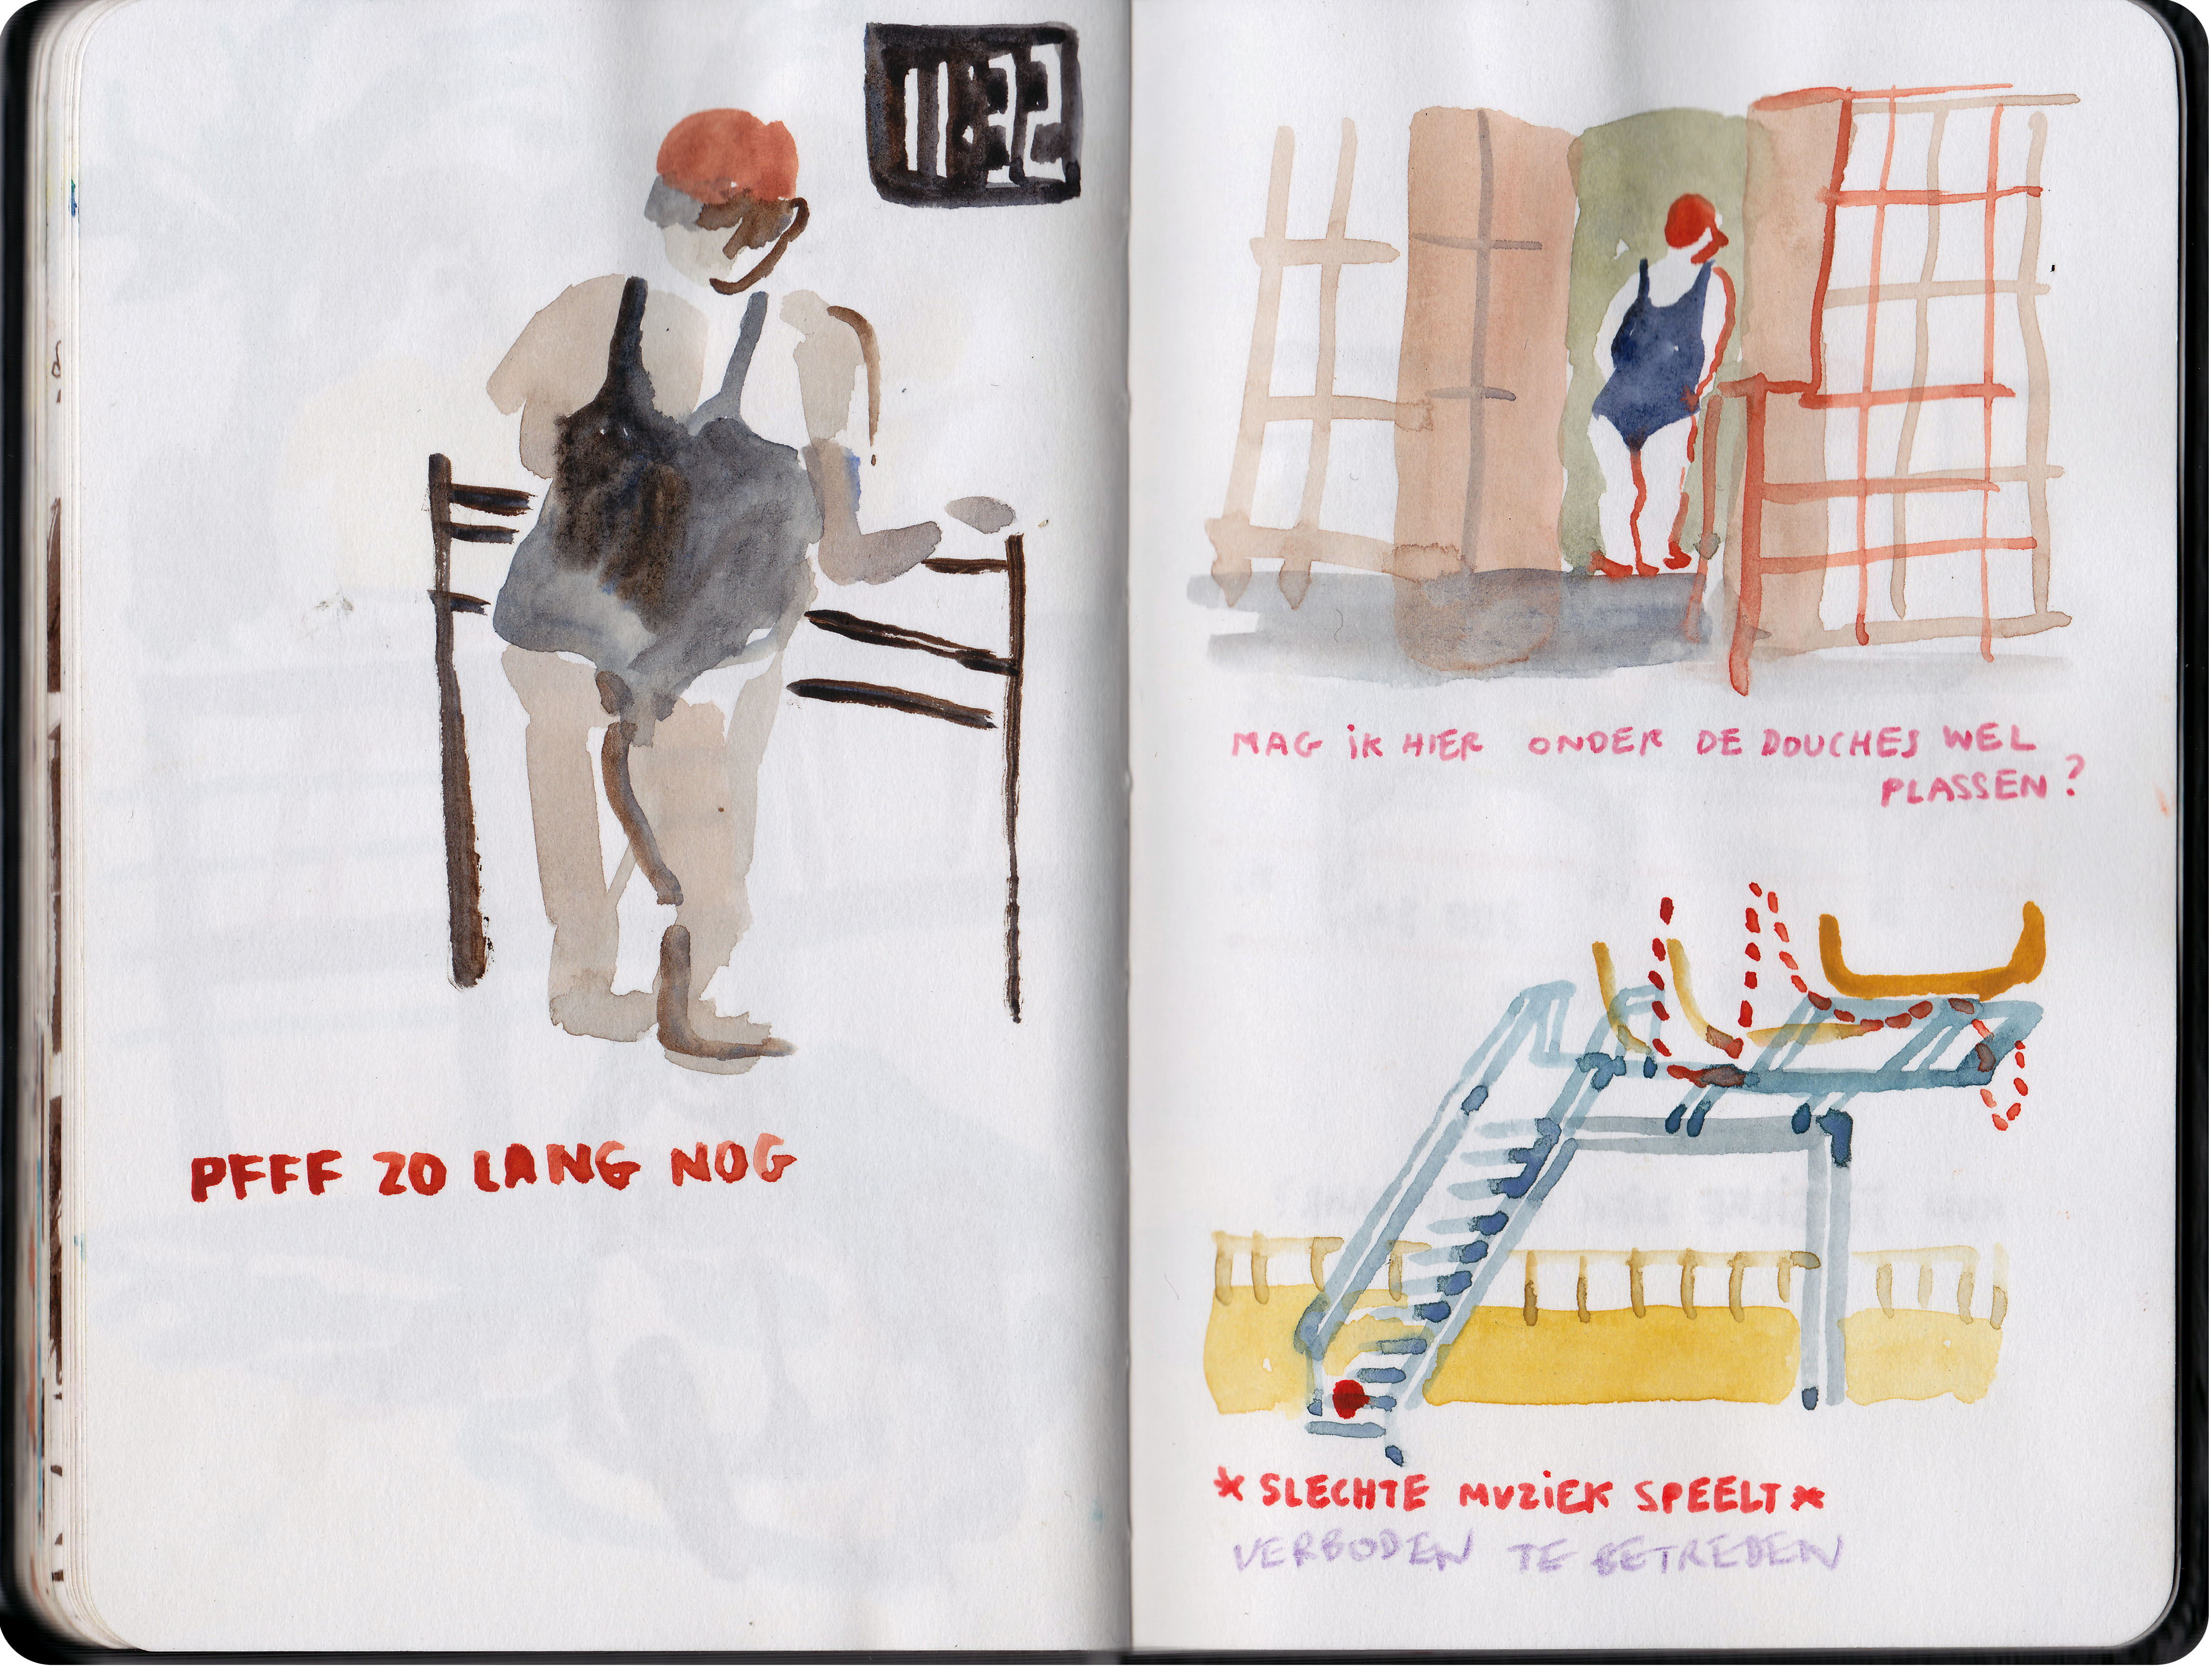 11:32
PFFF ZO LANG NOG
MAG iK HIER ONDER DE DOUCHES WEL
PLASSEN?
*SLECHTE MUZiEK SPEELT*
VERBODEN TE BETREDEN